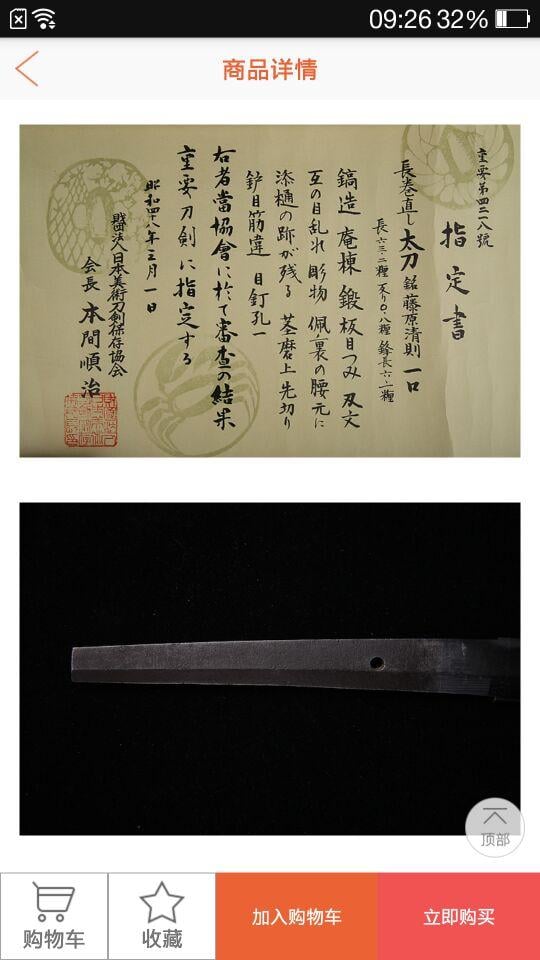 09:26 32%
商品详情
重要第四二一八號
指定書
長巻直し 太刀 銘 藤原清則 一口
長六三・二糎 反り〇・八糎 鋒長六・一糎
鎬造 庵棟 鍛 板目つみ 刃文
互の目乱れ 彫物 佩裏の腰元に
添樋の跡が残る 茎磨上 先切り
鈩目筋違 目釘孔一
右者當協會に於て審査の結果
重要刀剣に指定する
昭和四八年三月一日
財団法人日本美術刀剣保存協会
会長 本間順治
顶部
购物车
收藏
加入购物车
立即购买